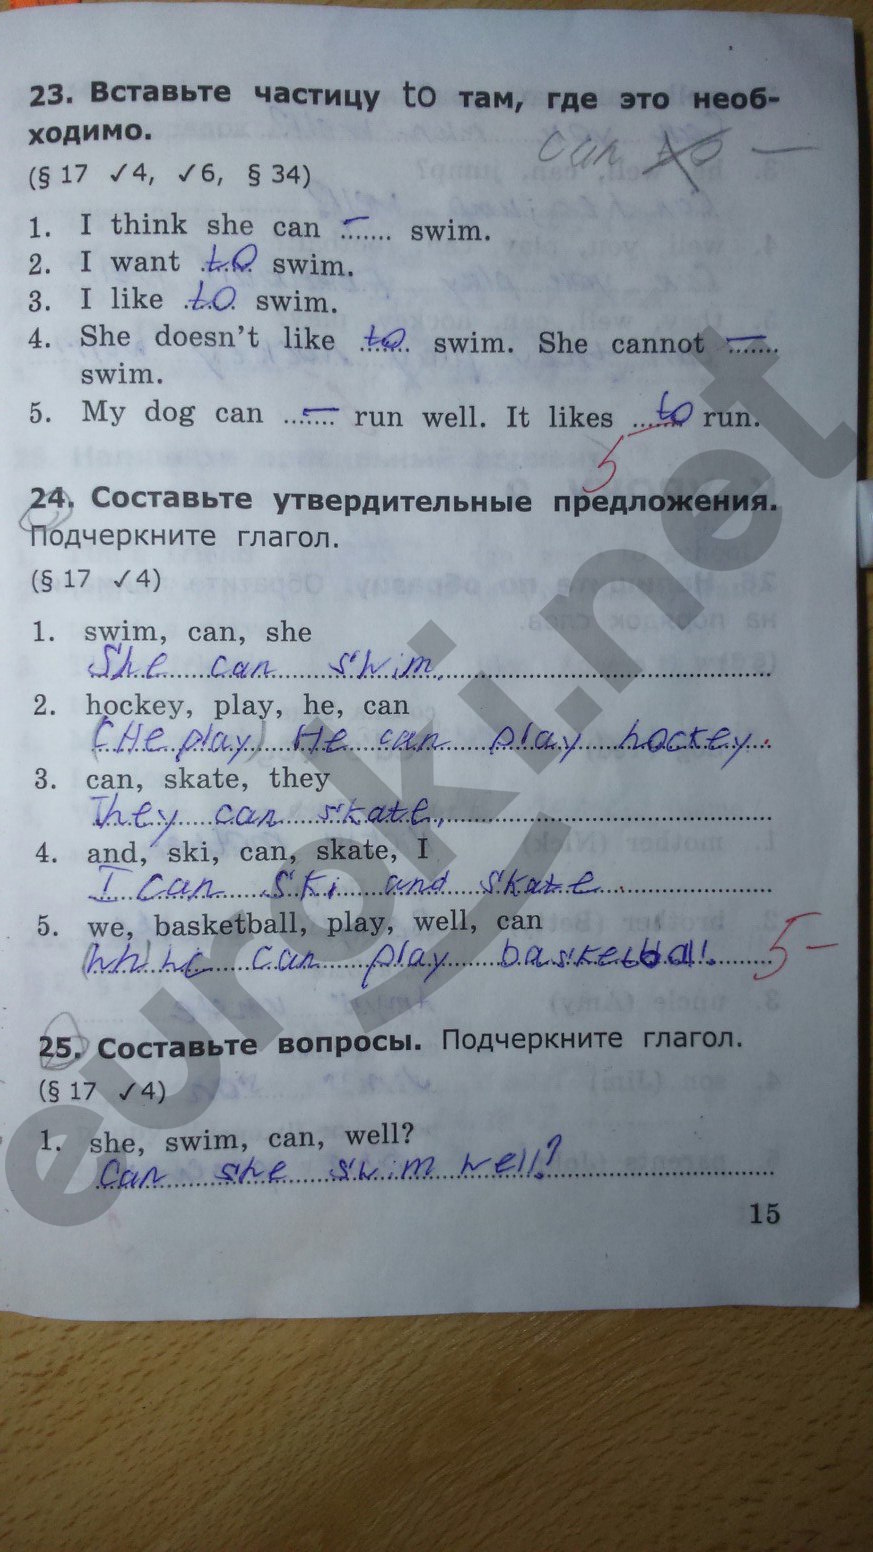 23. Вставьте частицу to там, где это необ-
ходимо.
can to —
(§ 17 ✓4, ✓6, § 34)
1. I think she can ...—... swim.
2. I want ..to.. swim.
3. I like ..to.. swim.
4. She doesn't like ..to.. swim. She cannot ..—..
swim.
5. My dog can ...—... run well. It likes ...to... run.
5
24. Составьте утвердительные предложения.
Подчеркните глагол.
(§ 17 ✓4)
1. swim, can, she
She can swim.
2. hockey, play, he, can
(He play) He can play hockey.
3. can, skate, they
They can skate.
4. and, ski, can, skate, I
I can ski and skate.
5. we, basketball, play, well, can
can play basketball.
5-
25. Составьте вопросы. Подчеркните глагол.
(§ 17 ✓4)
1. she, swim, can, well?
Can she swim well?
15
euroki.net